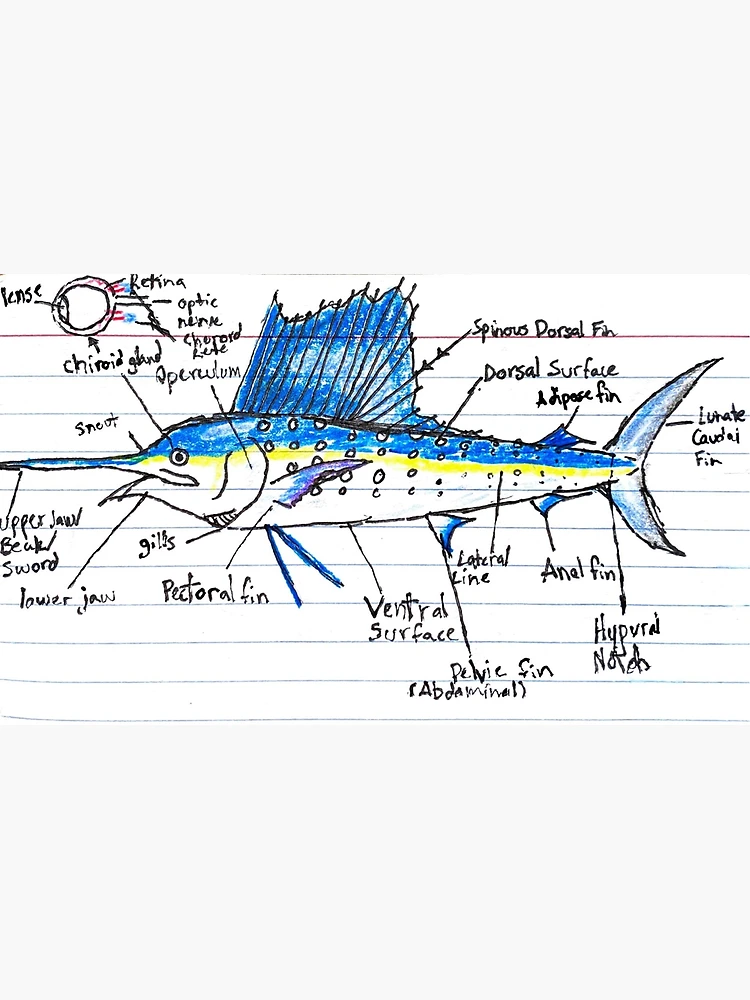 Retina
lense
optic
nerve
choroid
Rete
chiroid gland
Operculum
Spinous Dorsal Fin
Dorsal Surface
Adipose fin
Lunate
Caudal
Fin
Snout
upper jaw/
Beak/
Sword
lower jaw
gills
Pectoral fin
Ventral
Surface
Lateral
Line
Anal fin
Hypural
Notch
Pelvic fin
(Abdaminal)